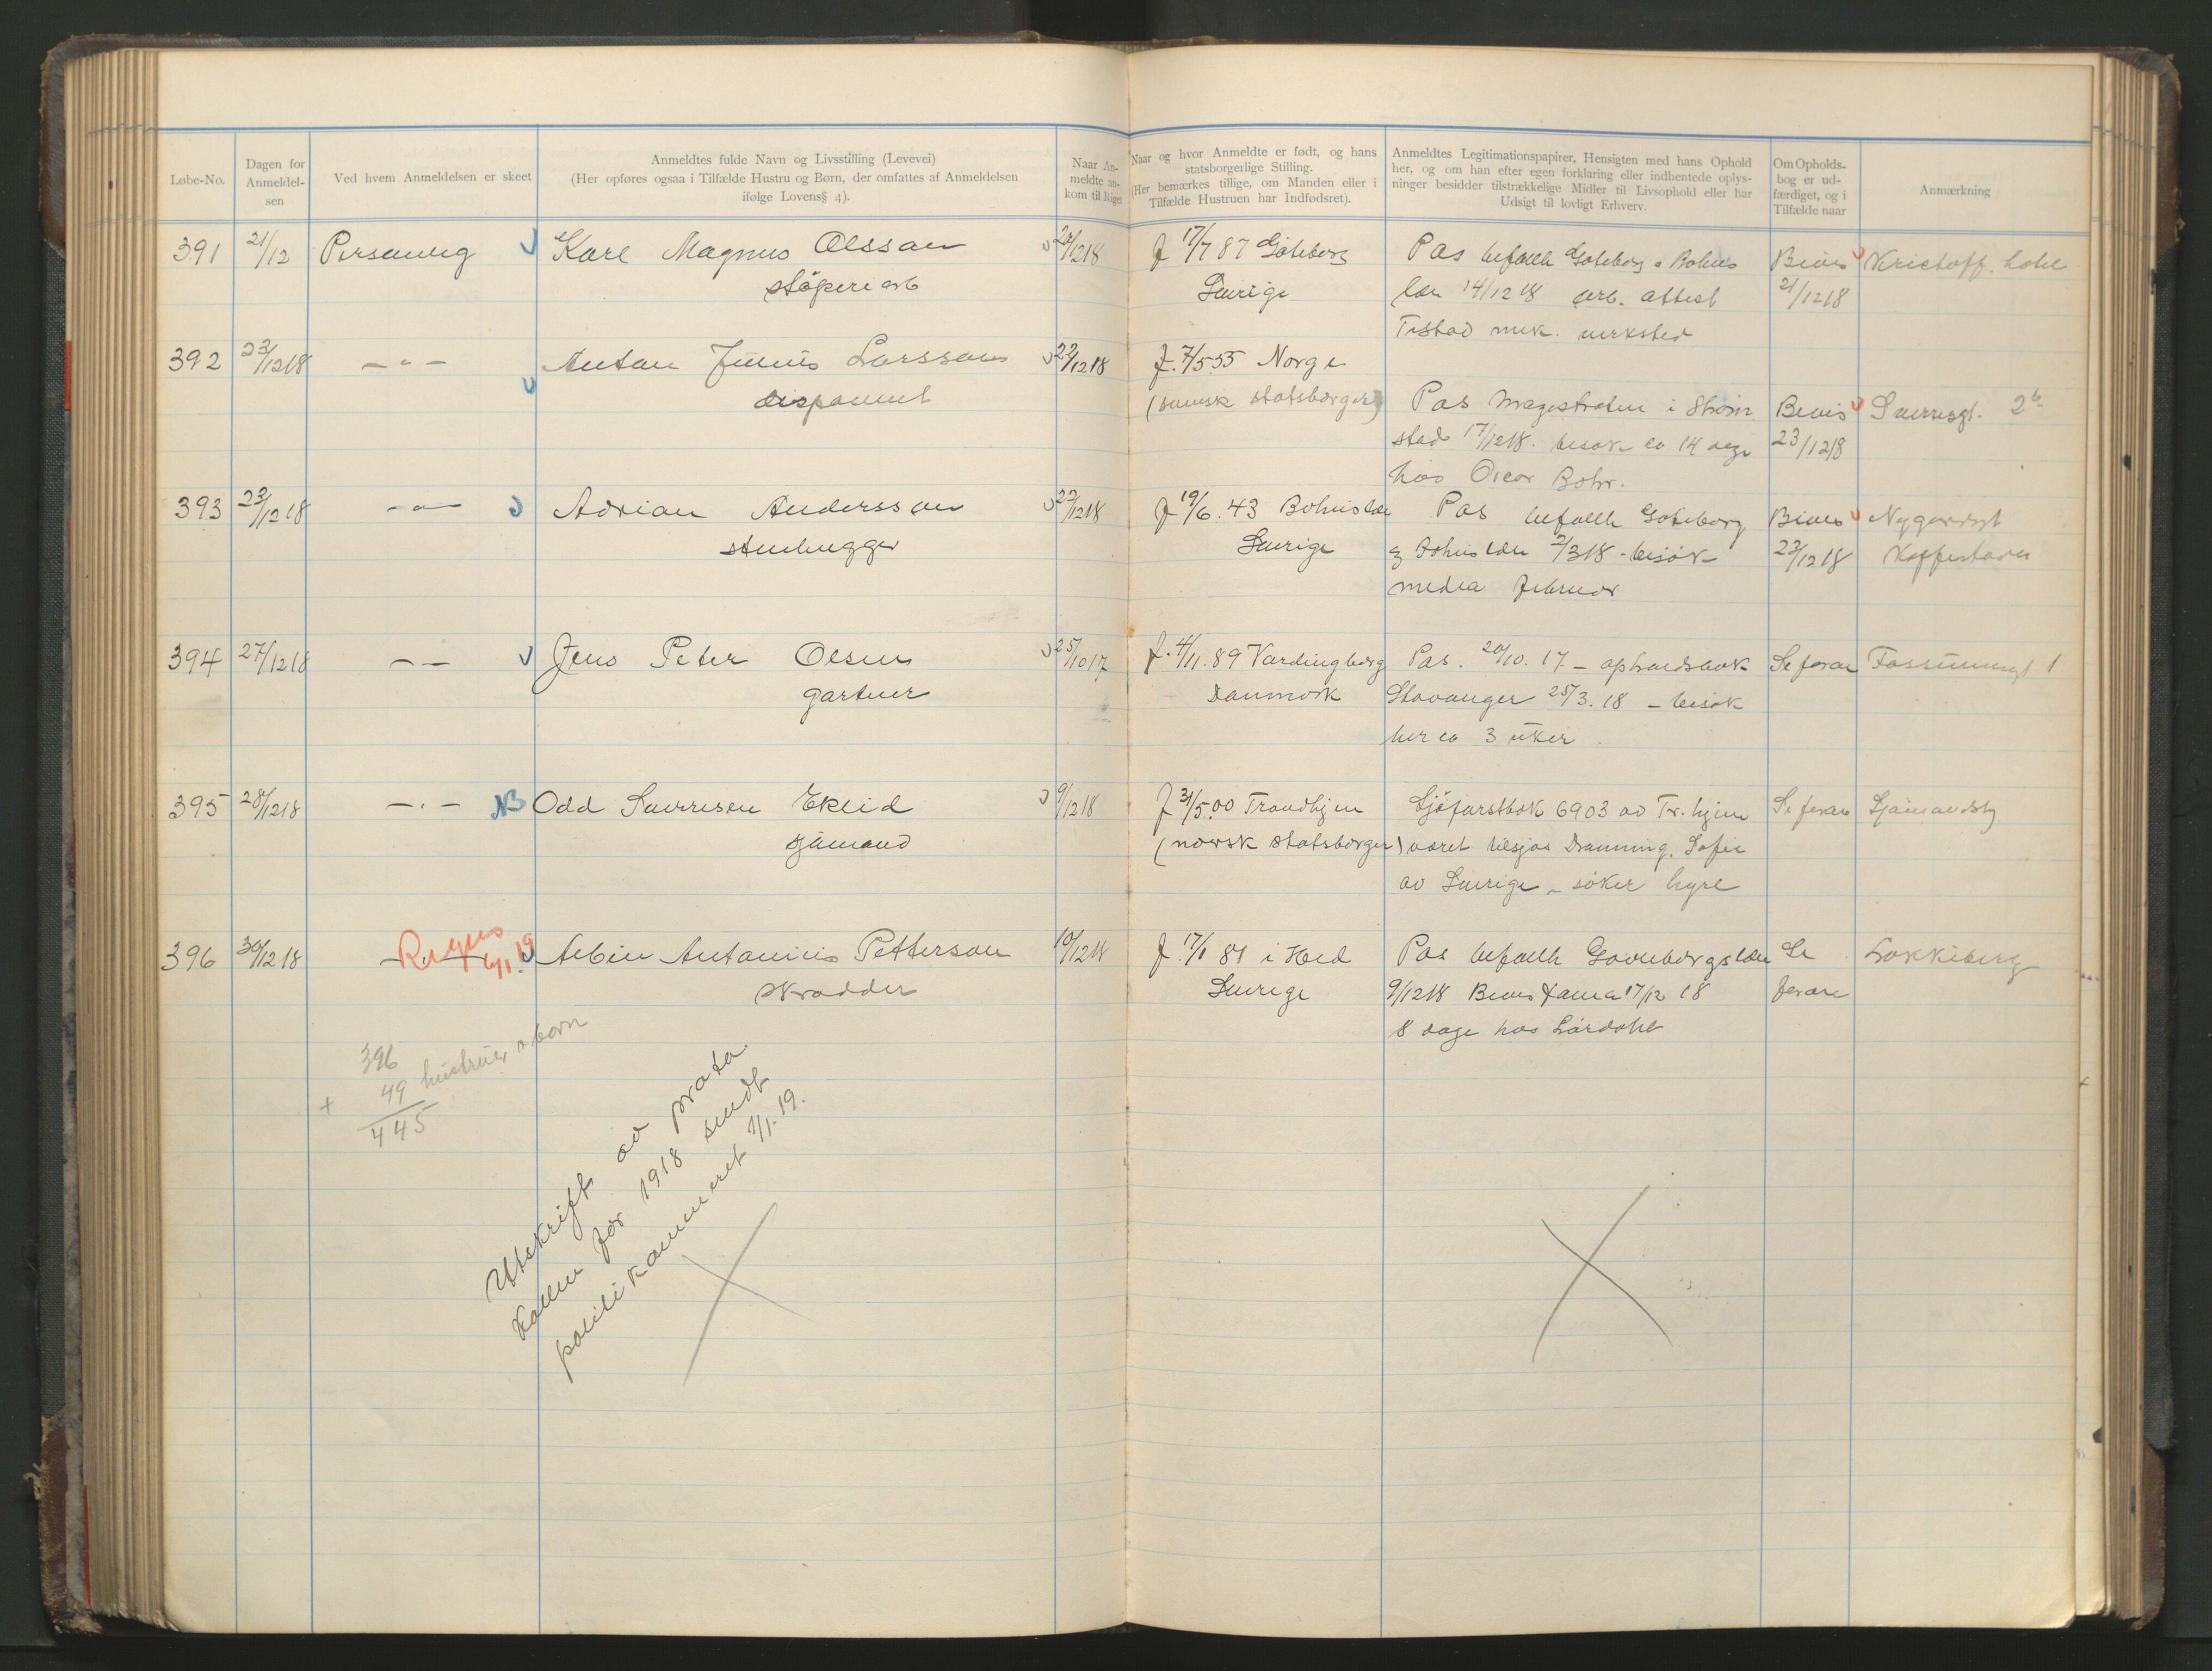 Løbe-No.
Dagen for
Anmeldel-
sen
Ved hvem Anmeldelsen er skeet
Anmeldtes fulde Navn og Livsstilling (Levevei)
(Her opføres ogsaa i Tilfælde Hustru og Børn, der omfattes af Anmeldelsen
ifølge Lovens§ 4).
Naar An-
meldte an-
kom til Riget
Naar og hvor Anmeldte er født, og hans
statsborgerlige Stilling.
(Her bemærkes tillige, om Manden eller i
Tilfælde Hustruen har Indfødsret).
Anmeldtes Legitimationspapirer, Hensigten med hans Ophold
her, og om han efter egen forklaring eller indhentede oplys-
ninger besidder tilstrækkelige Midler til Livsophold eller har
Udsigt til lovligt Erhverv.
Om Opholds-
bog er ud-
færdiget, og i
Tilfælde naar
Anmærkning
391 21/12 Personlig Karl Magnus Olsson 20/12 18 f 17/7 87 Göteborg Pas befallh Goteborg o Bohus Bevis Kristoff. hotel
støperiarb Sverige len 14/12 18 arb. attest 21/12 18
Tistad mek. verksted
392 23/12 18 — " — Anton Julius Larsson 22/12 18 f. 7/5 55 Norge
disponent (svensk statsborger) Pas Magistraten i Strøm Bevis Sverresgt. 2b
stad 17/12 18. besøk ca 14 dage 23/12 18
hos Oscar Bohr.
393 23/12 18 — " — Adrian Andersson 22/12 18 f 19/6. 43 Bohuslen Pas befallh Goteborg Bevis Nygaardsgt
stenhugger Sverige og Bohuslen 2/3 18 - besøk 23/12 18 Kaffestova
medio februar
394 27/12 18 — — Jens Peter Olsen 25/10 17 f. 4/11. 89 Vordingborg Pas. 20/10. 17 — opholdsbok Se foran Fossumsgt 1
gartner Danmark Stavanger 25/3. 18 — besøk
her ca 3 uker.
395 28/12 18 — . — NB Odd Sverresen Ekeid 9/12 18 f 31/5. 00 Trondhjem Sjøfartsbok 6903 av Tr. hjem Se foran Sjømandshj
sjømand (norsk statsborger) været tilsjøs Dronning. Sofie
av Sverige — søker hyre
396 30/12 18 6/1. 19 Albin Antonius Petterson 10/12 18 f. 17/1 81 i Hed Pas befallh Gavleborgslen Se Lokkeberg
skrædder Sverige 9/12 18 Bevis 17/12 18 foran
8 dage hos Lørdahl
396
49 hustruer o barn
+
445
Utskrift av
for 1918 sendt
politikammeret 7/1. 19.